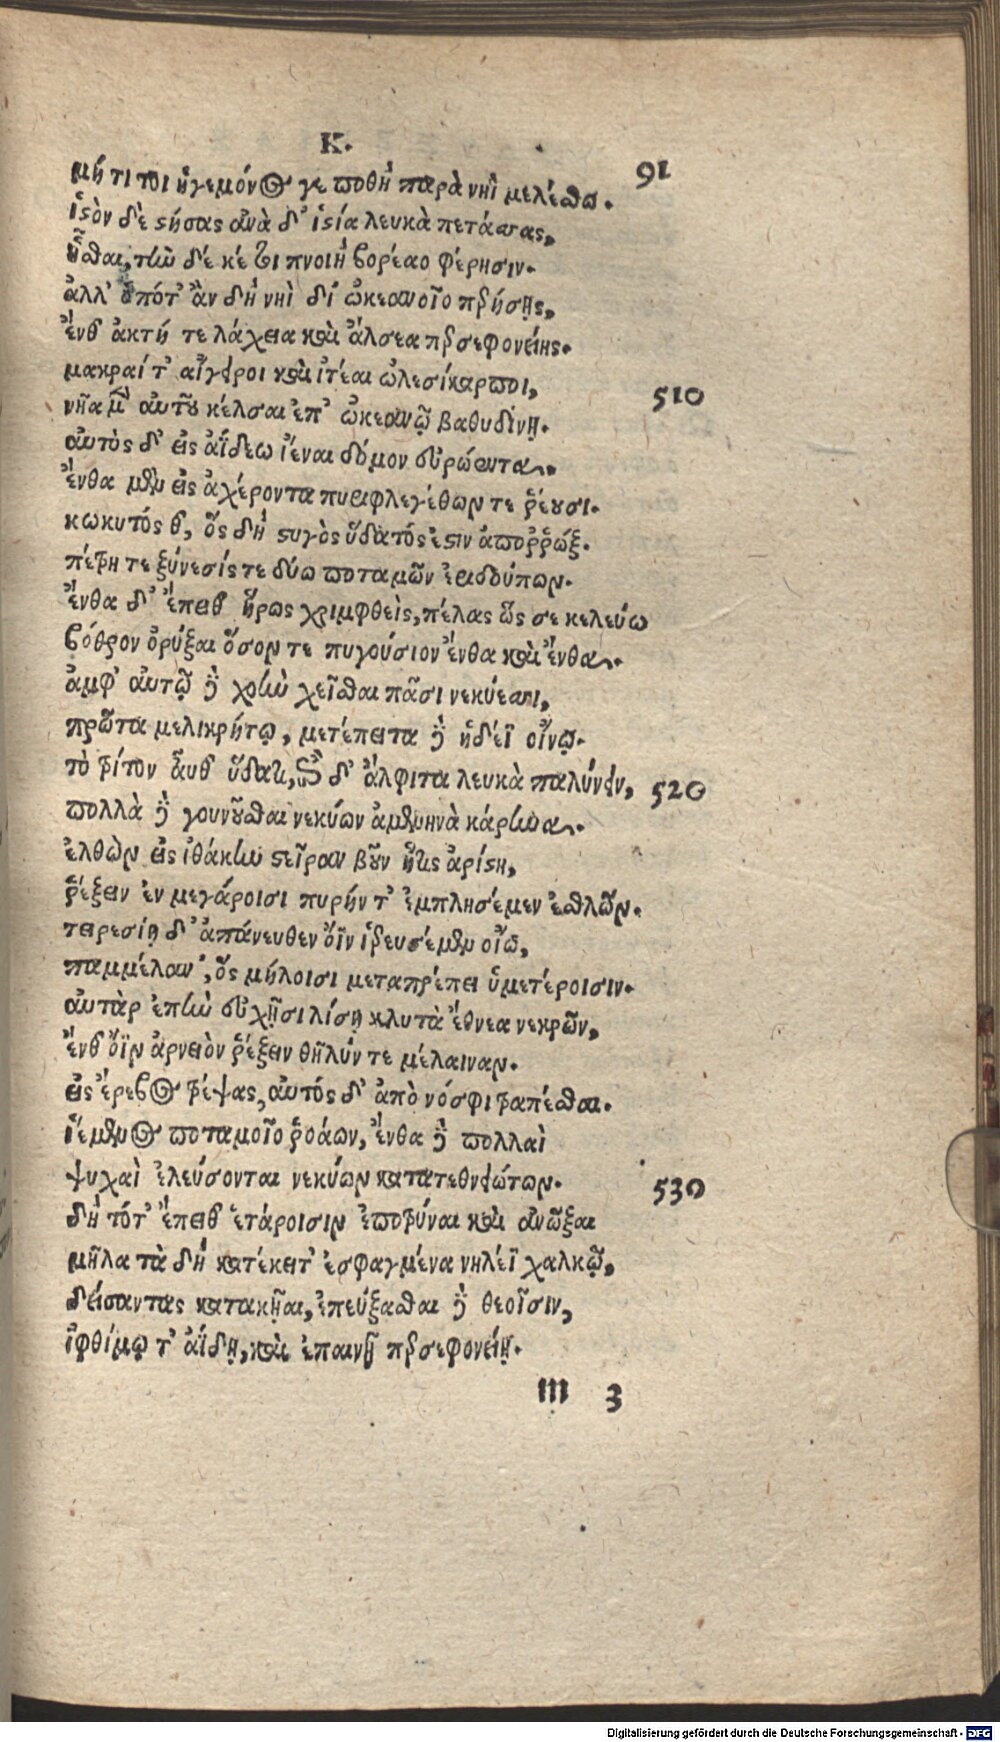 Κ.
91
μή τι τοι ἡγεμόνος γε ποθὴ παρὰ νηῒ μελέσθω.
ἱστὸν δὲ στήσας ἀνὰ δ' ἱστία λευκὰ πετάσσας,
ἧσθαι, τὴν δέ κέ τοι πνοιὴ βορέαο φέρησιν.
ἀλλ' ὁπότ' ἂν δὴ νηῒ δι' ὠκεανοῖο περήσῃς,
ἔνθ' ἀκτή τε λάχεια καὶ ἄλσεα περσεφονείης.
μακραί τ' αἴγειροι καὶ ἰτέαι ὠλεσίκαρποι,
510
νῆα μὲν αὐτοῦ κέλσαι ἐπ' ὠκεανῷ βαθυδίνῃ.
αὐτὸς δ' εἰς ἀΐδεω ἰέναι δόμον εὐρώεντα.
ἔνθα μὲν εἰς ἀχέροντα πυριφλεγέθων τε ῥέουσι.
κωκυτός θ', ὃς δὴ στυγὸς ὕδατός ἐστιν ἀποῤῥώξ.
πέτρη τε ξύνεσίς τε δύω ποταμῶν ἐριδούπων.
ἔνθα δ' ἔπειθ' ἥρως χριμφθεὶς, πέλας ὥς σε κελεύω
βόθρον ὀρύξαι ὅσον τε πυγούσιον ἔνθα καὶ ἔνθα.
ἀμφ' αὐτῷ δὲ χοὴν χεῖσθαι πᾶσι νεκύεσσι,
πρῶτα μελικρήτῳ, μετέπειτα δὲ ἡδέϊ οἴνῳ.
τὸ τρίτον αὖθ' ὕδατι, ἐπὶ δ' ἄλφιτα λευκὰ παλύνειν,
520
πολλὰ δὲ γουνοῦσθαι νεκύων ἀμενηνὰ κάρηνα.
ἐλθὼν εἰς ἰθάκην στεῖραν βοῦν ἥτις ἀρίστη,
ῥέξειν ἐν μεγάροισι πυρήν τ' ἐμπλησέμεν ἐσθλῶν.
τειρεσίῃ δ' ἀπάνευθεν ὄϊν ἱρευσέμεν οἴῳ,
παμμέλαν', ὃς μήλοισι μεταπρέπει ὑμετέροισιν.
αὐτὰρ ἐπὴν εὐχῇσι λίσῃ κλυτὰ ἔθνεα νεκρῶν,
ἔνθ' ὄϊν ἀρνειὸν ῥέξειν θῆλύν τε μέλαιναν.
εἰς ἔρεβος τρέψας, αὐτός δ' ἀπὸ νόσφι τραπέσθαι.
ἱέμενος ποταμοῖο ῥοάων, ἔνθα δὲ πολλαὶ
ψυχαὶ ἐλεύσονται νεκύων κατατεθνειώτων.
530
δὴ τότ' ἔπειθ' ἑτάροισιν ἐποτρύναι καὶ ἀνῶξαι
μῆλα τὰ δὴ κατέκειτ' ἐσφαγμένα νηλέϊ χαλκῷ,
δείσαντας κατακῆαι, ἐπεύξασθαι δὲ θεοῖσιν,
ἰφθίμῳ τ' ἀΐδῃ, καὶ ἐπαινῇ περσεφονείῃ.
m 3
Digitalisierung gefördert durch die Deutsche Forschungsgemeinschaft - DFG